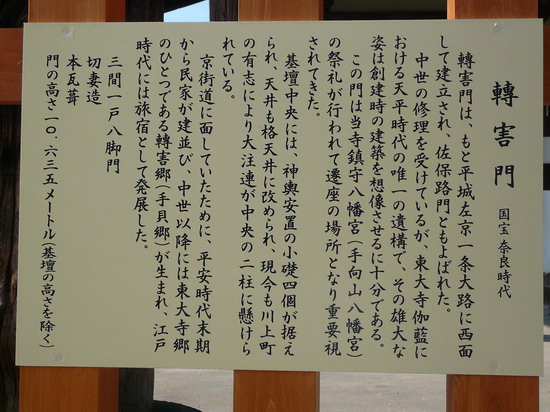 轉害門 国宝 奈良時代
轉害門は、もと平城左京一条大路に西面
して建立され、佐保路門ともよばれた。
中世の修理を受けているが、東大寺伽藍に
おける天平時代の唯一の遺構で、その雄大な
姿は創建時の建築を想像させるに十分である。
この門は当寺鎮守八幡宮(手向山八幡宮)
の祭礼が行われて遷座の場所となり重要視
されてきた。
基壇中央には、神輿安置の小礎四個が据え
られ、天井も格天井に改められ、現今も川上町
の有志により大注連が中央の二柱に懸けら
れている。
京街道に面していたために、平安時代末期
から民家が建並び、中世以降には東大寺郷
のひとつである轉害郷(手貝郷)が生まれ、江戸
時代には旅宿として発展した。
三間一戸八脚門
切妻造
本瓦葺
門の高さ一〇.六三五メートル(基壇の高さを除く)